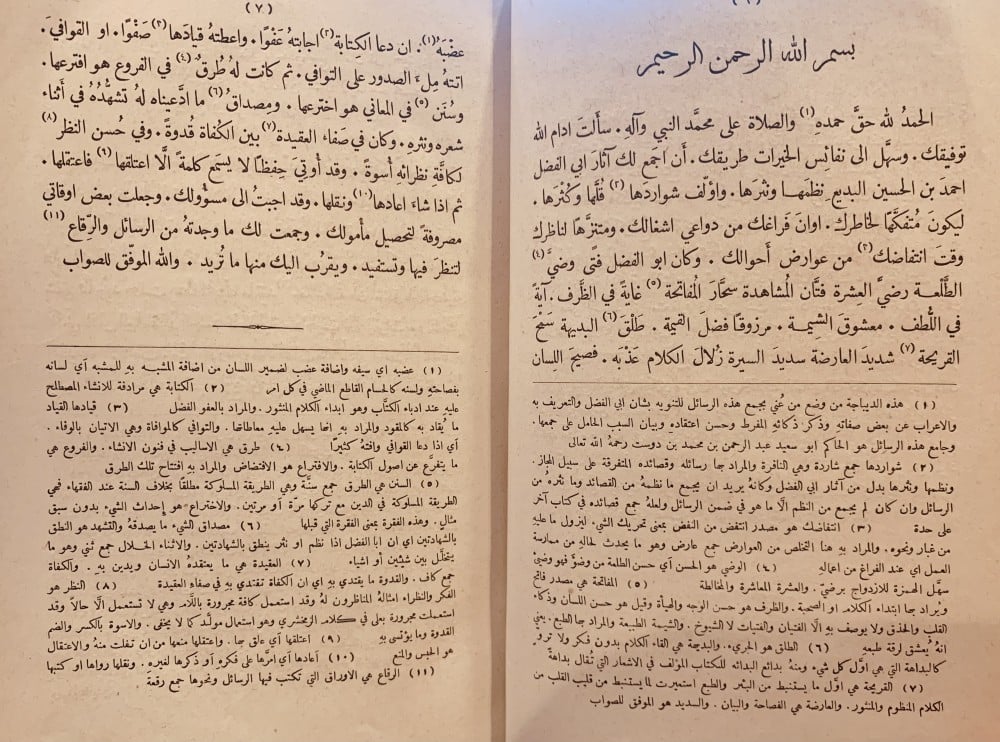 بسم الله الرحمن الرحيم
الحمدُ لله حقَّ حمدِهِ (١) والصلاة على محمَّد النبي وآلهِ . سأَلتَ ادام الله
توفيقك . وسهَّل الى نفائِس الخيرات طريقك . أَن اجمع لك آثارَ ابي الفضل
احمدَ بن الحسين البديع نظمها ونثرَها . واؤلّف شواردَها (٢) قُلَّها وكُثْرَها .
ليكونَ مُتفكَّهًا لخاطرك . اوانَ فراغك من دواعي اشغالك . ومتنزَّهًا لناظرك
وقتَ انتفاضك (٣) من عوارض أَحوالك . وكان ابو الفضل فتًى وضيَّ (٤)
الطَّلْعة رضيَّ العِشرة فتَّان المُشاهدة سحَّارَ المُفاتحة (٥) غايةً في الظَّرف . آيةً
في اللُّطف . معشوقَ الشيمة . مرزوقًا فضلَ القيمة . طَلْقَ (٦) البديهة سَمْحَ
القريحة (٧) شديدَ العارضة سديدَ السيرة زُلالَ الكلام عَذْبَه . فصيحَ اللسان
(١) هذه الديباجة من وضع من عُني بجمع هذه الرسائل للتنويه بشان ابي الفضل والتعريف به
والاعراب عن بعض صفاته وذكر ذكائهِ المفرط وحسن اعتقادهِ وبيان السبب الحامل على جمعها .
وجامع هذه الرسائل هو الحاكم ابو سعيد عبد الرحمن بن محمد بن دوست رحمهُ الله تعالى
(٢) شواردها جمع شاردة وهي النافرة والمراد بها رسائله وقصائده المتفرقة على سبيل المجاز .
ونظمها ونثرها بدل من آثار ابي الفضل وكانهُ يريد ان يجمع ما نظمهُ من القصائد وما نثرهُ من
الرسائل وان كان لم يجمع من النظم الَّا ما هو في ضمن الرسائل ولعلهُ جمع قصائده في كتاب آخر
على حدة (٣) انتفاضك هو مصدر انتفض من النفض بمعنى تحريك الشيء ليزول ما عليهِ
من غبار ونحوه . والمراد بهِ هنا التخلص من العوارض جمع عارض وهو ما يحدث لحالهِ من ممارسة
العمل اي عند الفراغ من اعمالهِ (٤) الوضي هو الحسن أي حسن الطلعة من وضوَّ فهو وضيّ
سهَّل الهمزة للازدواج برضيّ . والعشرة المعاشرة والمخالطة (٥) المفاتحة هي مصدر فاتح
ويُراد بها ابتداء الكلام او الصحبة . والظرف هو حسن الوجه والهيأة وقيل هو حسن اللسان وذكاء
القلب والحذق ولا يوصف بهِ الَّا الفتيان والفتيات لا الشيوخ . والشيمة الطبيعة والمراد بها الطبع . يعني
انهُ يُعشق لرقة طبعهِ (٦) الطلق هو الجريء . والبديهة هي القاء الكلام بدون فكر ولا تروٍّ
كالبداهة التي هي اوَّل كل شيء ومنهُ بدائع البدائه للكتاب المؤلف في الاشعار التي تُقال بداهةً
(٧) القريحة هي اوَّل ما يستنبط من البئر والطبع استعيرت لما يستنبط من قليب القلب من
الكلام المنظوم والمنثور . والعارضة هي الفصاحة والبيان . والسديد هو الموفق للصواب
(٧)
عضْبَهُ (١) . ان دعا الكِتابة (٢) اجابتهُ عَفْوًا . واعطتهُ قيادَها (٣) صَفْوًا . او القوافيَ .
اتتهُ مِلءَ الصدور على التوافي . ثم كانت لهُ طُرقٌ (٤) في الفروع هو افترعها .
وسُنَن (٥) في المعاني هو اخترعها . ومِصداقُ (٦) ما ادَّعيناه لهُ تشهُّدُهُ في أَثناء
شعرهِ ونثرهِ . وكان في صفاء العقيدة (٧) بين الكُفاة قُدوةً . وفي حُسن النظر (٨)
لكافَّةِ نظرائهِ أُسوةً . وقد أُوتيَ حِفظًا لا يسمَع كلمةً الَّا اعتلقها (٩) فاعتقلها .
ثم اذا شاءَ اعادها (١٠) ونقلها . وقد اجبتُ الى مسؤولك . وجعلت بعض اوقاتي
مصروفةً لتحصيل مأْمولك . وجمعت لك ما وجدتهُ من الرسائل والرِّقاع (١١)
لتنظرَ فيها وتستفيد . ويقرُب اليك منها ما تُريد . والله الموفّق للصواب
(١) عضبه اي سيفه واضافة عضب لضمير اللسان من اضافة المشبه بهِ للمشبه أي لسانه
بفصاحتهِ ولسنه كالحسام القاطع الماضي في كل امر (٢) الكتابة هي مرادفة للانشاء المصطلح
عليهِ عند ادباء الكتَّاب وهو ابتداء الكلام المنثور . والمراد بالعفو الفضل (٣) قيادها القياد
ما يُقاد بهِ كالمقود والمراد بهِ انها يسهل عليهِ معاطاتها . والتوافي كالموافاة وهي الاتيان بالوفاء .
أي اذا دعا القوافي وافتهُ كثيرًا (٤) طرق هي الاساليب في فنون الانشاء . والفروع هي
ما يتفرَّع عن اصول الكتابة . والافتراع هو الافتضاض والمراد بهِ افتتاح تلك الطرق
(٥) السنن هي الطرق جمع سنَّة وهي الطريقة المسلوكة مطلقًا بخلاف السنة عند الفقهاء فهي
الطريقة المسلوكة في الدين مع تركها مرَّة أو مرتين . والاختراع هو إحداث الشيء بدون سبق
مثال . وهذه الفقرة بمعنى الفقرة التي قبلها (٦) مصداق الشيء ما يصدقهُ والتشهد هو النطق
بالشهادتين اي ان ابا الفضل اذا نظم او نثر ينطق بالشهادتين . والاثناء الخلال جمع ثني وهو ما
يتخلَّل بين شيئين أو اشياء . (٧) العقيدة هي ما يعتقدهُ الانسان ويدين بهِ . والكفاة
جمع كاف . والقدوة ما يقتدي بهِ اي ان الكفاة تقتدي بهِ في صفاء العقيدة (٨) النظر هو
الفكر والنظراء امثالهُ المناظرون لهُ وقد استعمل كافة مجرورة باللام وهي لا تستعمل الَّا حالًا وقد
استعملت مجرورة بعلى في كلام الزمخشري وهو استعمال مولَّد كما لا يخفى . والاسوة بالكسر والضم
القدوة وما يؤتسى بهِ (٩) اعتلقها أي علق بها . واعتقلها منعها من ان تفلت منهُ والاعتقال
هو الحبس والمنع (١٠) أعادها أي امرَّها على فكره أو ذكرها لغيره . ونقلها رواها او كتبها
(١١) الرقاع هي الاوراق التي تكتب فيها الرسائل ونحوها جمع رقعة